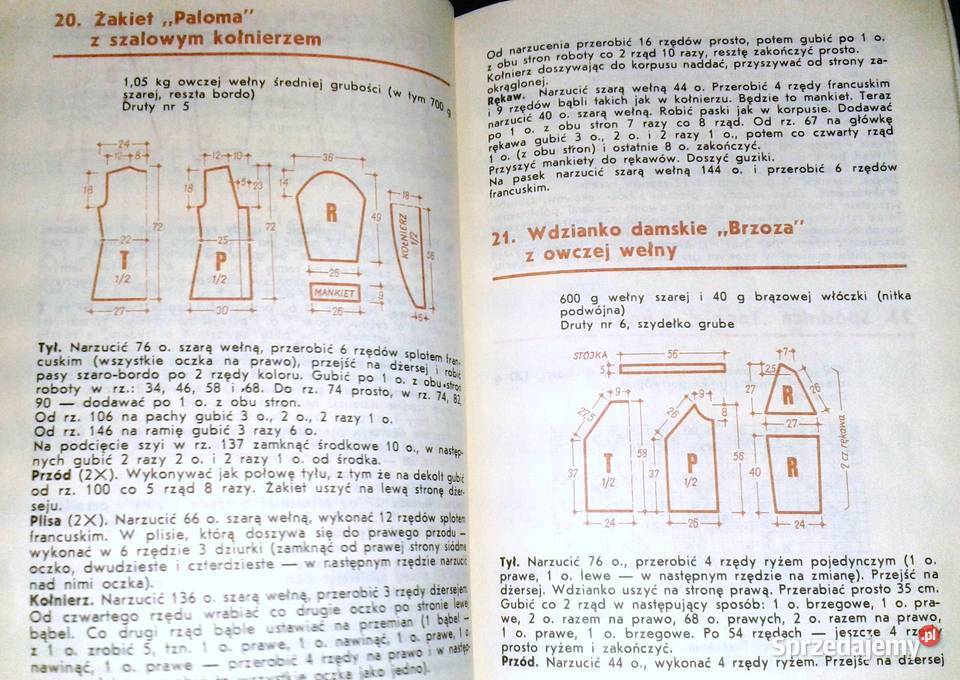 20. Żakiet „Paloma”
z szalowym kołnierzem
1,05 kg owczej wełny średniej grubości (w tym 700 g
szarej, reszta bordo)
Druty nr 5
24
12 8
18
72
22
T
1/2
27
12 10
18
5 23
72
25
P
1/2
30
36
14
R
49
26
MANKIET
9
26
18
KOŁNIERZ
1/2
56
6
Tył. Narzucić 76 o. szarą wełną, przerobić 6 rzędów splotem fran-
cuskim (wszystkie oczka na prawo), przejść na dżersej i robić
pasy szaro-bordo po 2 rzędy koloru. Gubić po 1 o. z obu stron
roboty w rz.: 34, 46, 58 i 68. Do rz. 74 prosto, w rz. 74, 82,
90 — dodawać po 1 o. z obu stron.
Od rz. 106 na pachy gubić 3 o., 2 o., 2 razy 1 o.
Od rz. 146 na ramię gubić 3 razy 6 o.
Na podcięcie szyi w rz. 137 zamknąć środkowe 10 o., w następ-
nych gubić 2 razy 2 o. i 2 razy 1 o. od środka.
Przód (2X). Wykonywać jak połowę tyłu, z tym że na dekolt gubić
od rz. 100 co 5 rząd 8 razy. Żakiet uszyć na lewą stronę dżer-
seju.
Plisa (2X). Narzucić 66 o. szarą wełną, wykonać 12 rzędów splotem
francuskim. W plisie, którą doszywa się do prawego przodu —
wykonać w 6 rzędzie 3 dziurki (zamknąć od prawej strony siódme
oczko, dwudzieste i czterdzieste — w następnym rzędzie narzucić
nad nimi oczka).
Kołnierz. Narzucić 136 o. szarą wełną, przerobić 3 rzędy dżersejem.
Od czwartego rzędu wrabiać co drugie oczko po stronie lewej
bąbel. Co drugi rząd bąble ustawiać na przemian (1 bąbel —
z 1 o. zrobić 5, tzn. 1 o. prawe, 1 o. nawinąć, 1 o. prawe, 1 o.
nawinąć, 1 o. prawe — przerobić 4 rzędy na prawo i w następ-
wszystkie oczka jako jedno).
Od narzucenia przerobić 16 rzędów prosto, potem gubić po 1 o.
z obu stron roboty co 2 rząd 10 razy, resztę zakończyć prosto.
Kołnierz doszywając do korpusu naddać, przyszywać od strony za-
okrąglonej.
Rękaw. Narzucić szarą wełną 44 o. Przerobić 4 rzędy francuskim
i 9 rzędów bąbli takich jak w kołnierzu. Będzie to mankiet. Teraz
narzucić 40 o. szarą wełną. Robić paski jak w korpusie. Dodawać
po 1 o. z obu stron 7 razy co 8 rząd. Od rz. 67 na główkę
rękawa gubić 3 o., 2 o. i 2 razy 1 o., potem co czwarty rząd
1 o. (z obu stron) i ostatnie 8 o. zakończyć.
Przyszyć mankiety do rękawów. Doszyć guziki.
Na pasek narzucić szarą wełną 144 o. i przerobić 6 rzędów
francuskim.
21. Wdzianko damskie „Brzoza”
z owczej wełny
600 g wełny szarej i 40 g brązowej włóczki (nitka
podwójna)
Druty nr 6, szydełko grube
STÓJKA
56
5
9
27,5
37
58
T
1/2
24
9
26
8
37
56
P
1/2
26
7
2,5
27
26
R
27
40
R
24
2 cz. rękawa
Tył. Narzucić 76 o., przerobić 4 rzędy ryżem pojedynczym (1 o.
prawe, 1 o. lewe — w następnym rzędzie na zmianę). Przejść na
dżersej. Wdzianko uszyć na stronę prawą. Przerabiać prosto 35 cm.
Gubić co 2 rząd w następujący sposób: 1 o. brzegowe, 1 o. pra-
we, 2 o. razem na prawo, 68 o. prawych, 2 o. razem na prawo,
1 o. prawe, 1 o. brzegowe. Po 54 rzędach — jeszcze 4 rzędy
prosto ryżem i zakończyć.
Przód. Narzucić 44 o., wykonać 4 rzędy ryżem. Przejść na dżersej
Sprzedajemy.pl